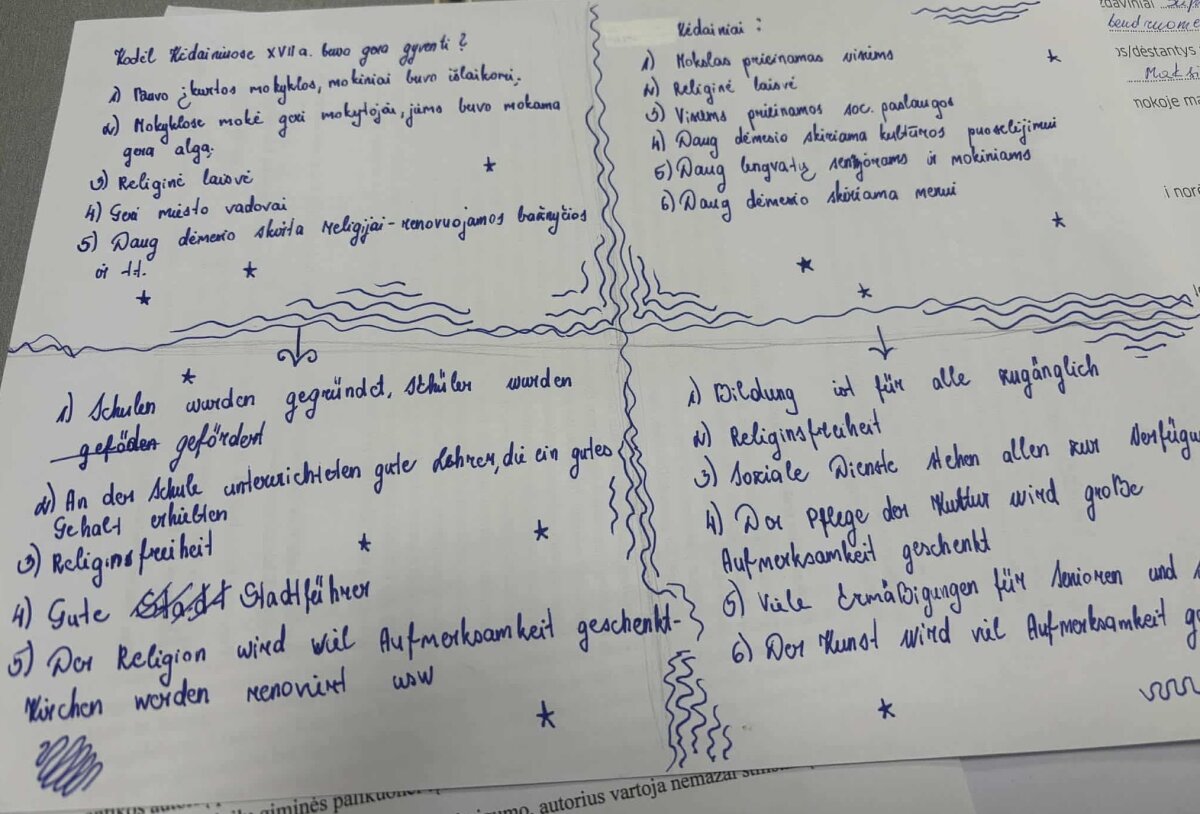 Kodėl Kėdainiuose XVII a. buvo gera gyventi?
1) Buvo įkurtos mokyklos, mokiniai buvo išlaikomi.
2) Mokyklose mokė geri mokytojai, jiems buvo mokama
gera alga.
3) Religinė laisvė
4) Geri miesto vadovai
5) Daug dėmesio skirta religijai - renovuojamos bažnyčios
ir t.t.
Kėdainiai:
1) Mokslas prieinamas visiems
2) Religinė laisvė
3) Visiems prieinamos soc. paslaugos
4) Daug dėmesio skiriama kultūros puoselėjimui
5) Daug lengvatų senjorams ir mokiniams
6) Daug dėmesio skiriama menui
1) Schulen wurden gegründet, Schüler wurden
geföden gefördert
2) An der Schule unterrichteten gute Lehrer, die ein gutes
Gehalt erhielten
3) Religinsfreiheit
4) Gute Stadt Stadtführer
5) Der Religion wird viel Aufmerksamkeit geschenkt-
Kirchen werden renoviert usw
1) Bildung ist für alle zugänglich
2) Religinsfreiheit
3) Soziale Dienste stehen allen zur Verfügun
4) Der Pflege der Kultur wird große
Aufmerksamkeit geschenkt
5) Viele Ermäßigungen für Senioren und
6) Der Kunst wird viel Aufmerksamkeit g
daviniai
bendruome
os/dėstantys
nokoje ma
i nore
giminės palikuonei
autorius vartoja nemažai